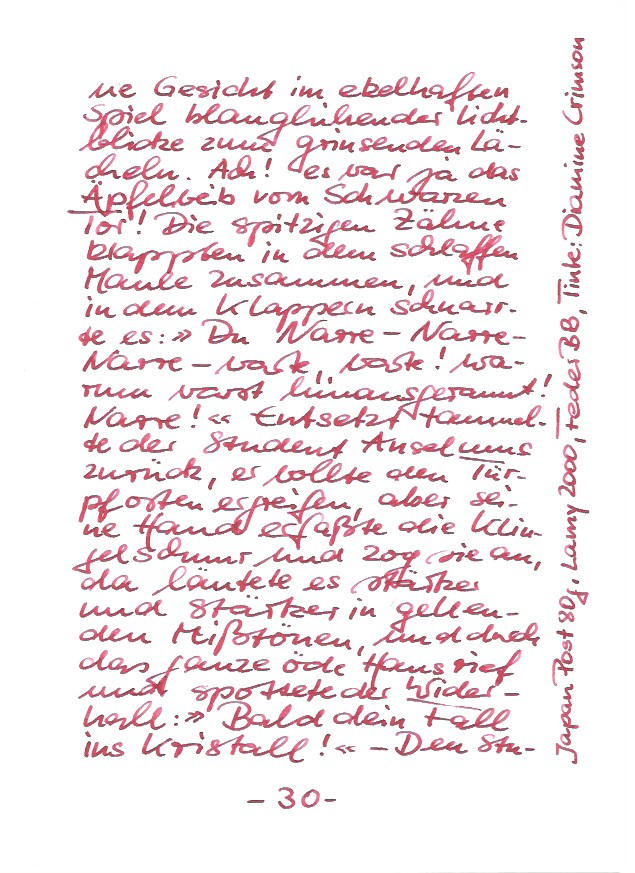 ne Gesicht im ekelhaften
Spiel blauglühender Licht-
blicke zum grinsenden Lä-
cheln. Ach! es war ja das
Äpfelweib vom Schwarzen
Tor! Die spitzigen Zähne
klappten in dem schlaffen
Maule zusammen, und
in dem Klappern schnarr-
te es:» Du Narre – Narre –
Narre – warte, warte! wa-
rum warst hinausgerannt!
Narre!« Entsetzt taumel-
te der Student Anselmus
zurück, er wollte den Tür-
pfosten ergreifen, aber sei-
ne Hand erfaßte die Klin-
gelschnur und zog sie an,
da läutete es stärker
und stärker in gellen-
den Mißtönen, und durch
das ganze öde Haus rief
und spottete der Wider-
hall:» Bald dein Fall
ins Kristall!« – Den Stu-
– 30 –
Japan Post 80g, Lamy 2000, Feder BB, Tinte: Diamine Crimson